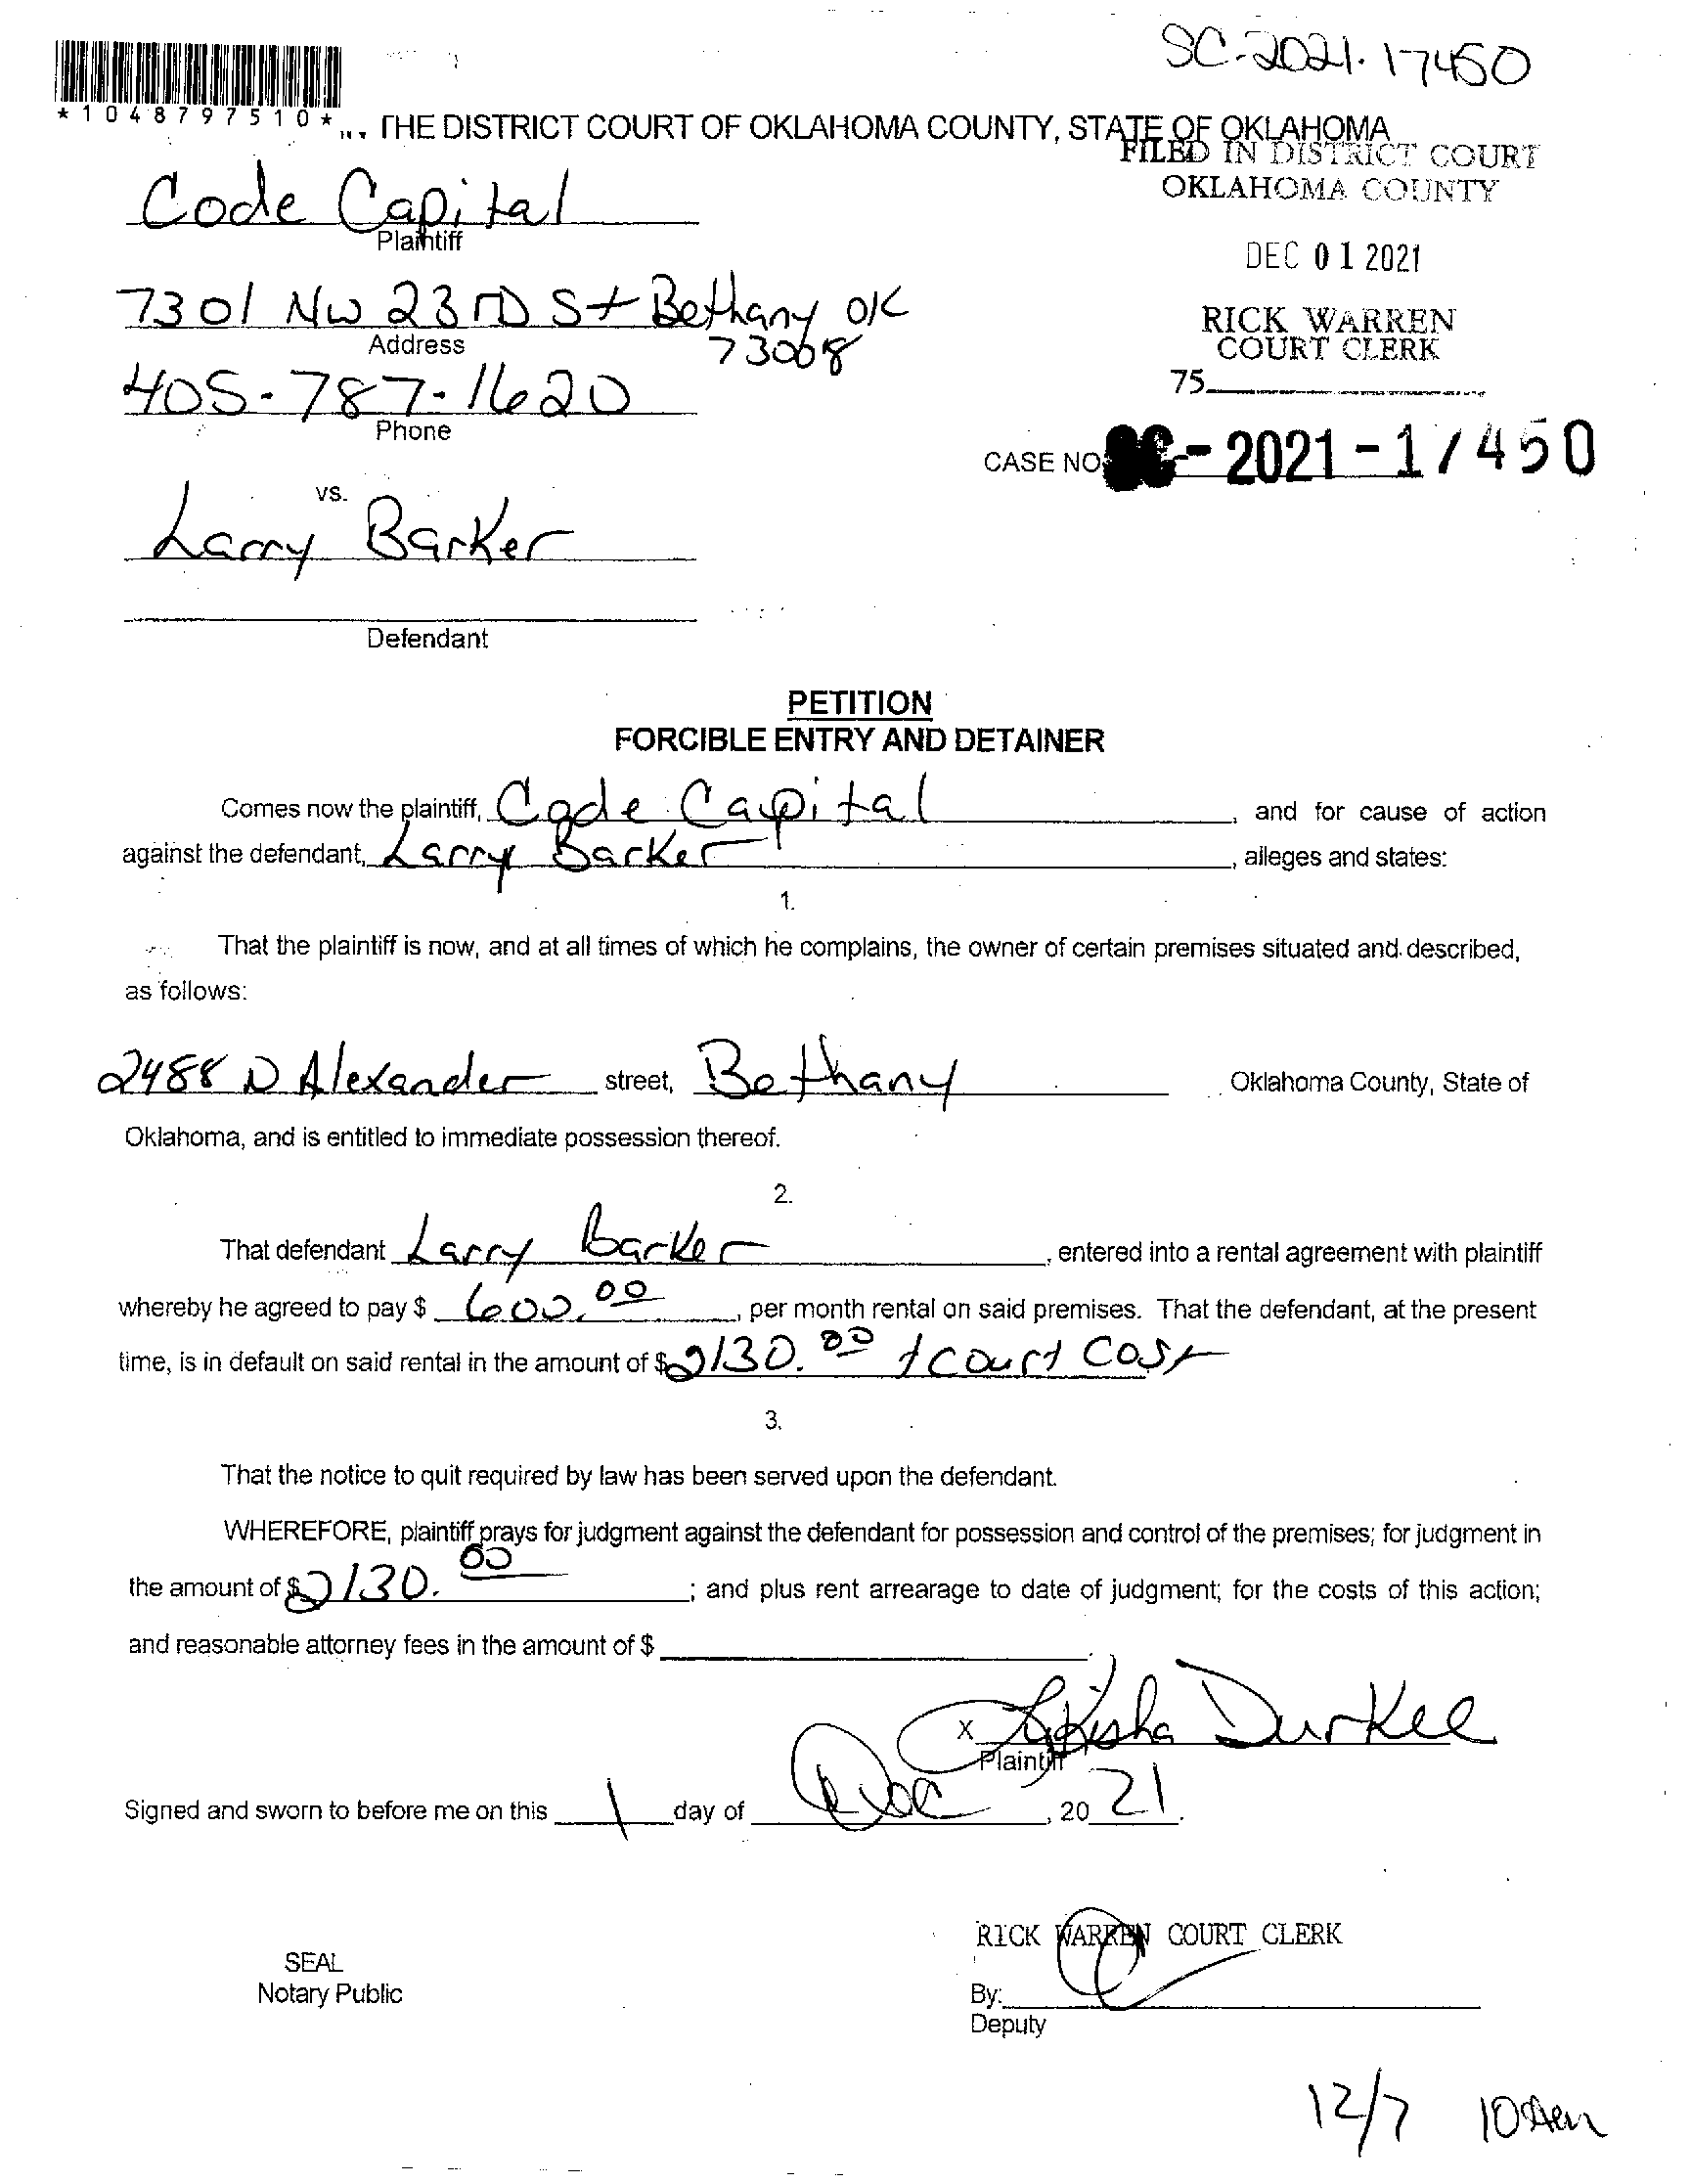 SC-2021-17450
*1048797510*
THE DISTRICT COURT OF OKLAHOMA COUNTY, STATE OF OKLAHOMA
FILED IN DISTRICT COURT
OKLAHOMA COUNTY
Code Capital
Plaintiff
DEC 01 2021
7301 NW 23RD St Bethany OK
73008
Address
RICK WARREN
COURT CLERK
405-787-1620
75
Phone
CASE NO. SC-2021-17450
vs.
Larry Barker
Defendant
PETITION
FORCIBLE ENTRY AND DETAINER
Comes now the plaintiff, Code Capital, and for cause of action
against the defendant, Larry Barker, alleges and states:
1.
That the plaintiff is now, and at all times of which he complains, the owner of certain premises situated and described,
as follows:
2488 N Alexander street, Bethany Oklahoma County, State of
Oklahoma, and is entitled to immediate possession thereof.
2.
That defendant Larry Barker, entered into a rental agreement with plaintiff
whereby he agreed to pay $ 600.00, per month rental on said premises. That the defendant, at the present
time, is in default on said rental in the amount of $2130.00 + court cost
3.
That the notice to quit required by law has been served upon the defendant.
WHEREFORE, plaintiff prays for judgment against the defendant for possession and control of the premises; for judgment in
the amount of $2130.00; and plus rent arrearage to date of judgment; for the costs of this action;
and reasonable attorney fees in the amount of $
X Durkee
Plaintiff
Signed and sworn to before me on this 1 day of Dec, 2021.
RICK WARREN COURT CLERK
SEAL
Notary Public
By:
Deputy
12/7 10 Am